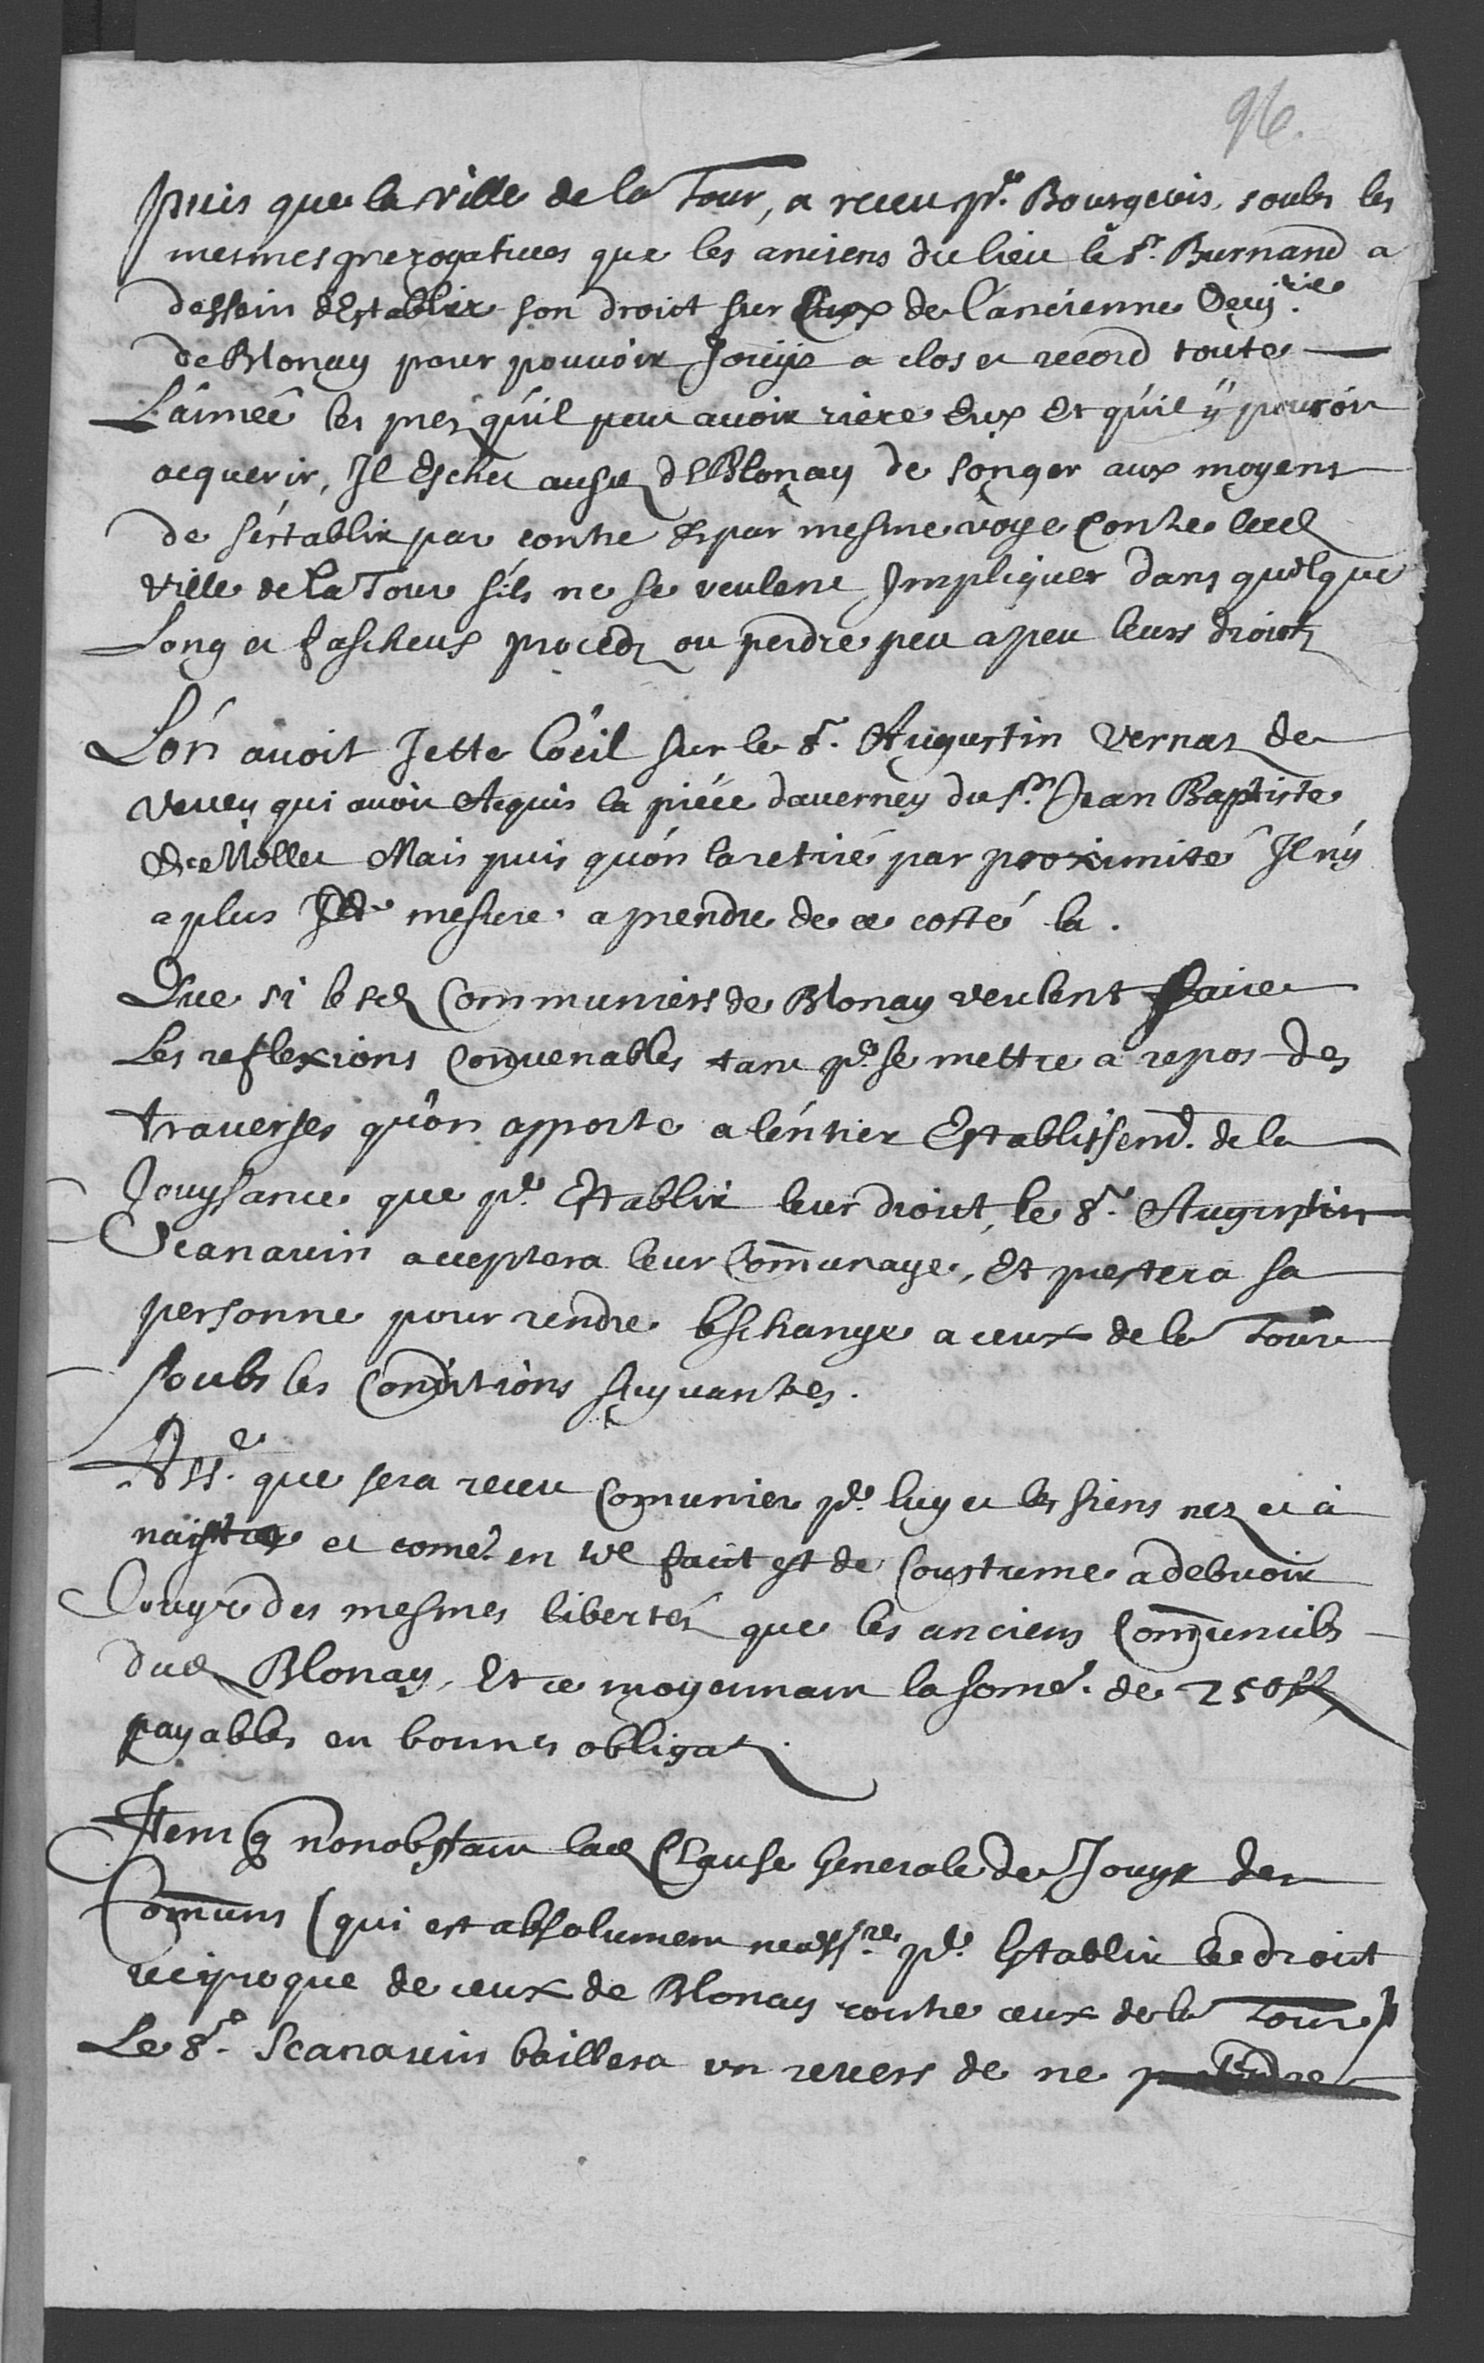 96.
puis que la ville de la Tour, a receu pr. Bourgeois, soubs les
mesmes prerogatiues que les anciens du lieu le Sr. Burnand a
dessein d'Establir son droit sur Ceux de l'ancienne
de Blonay pour pouuoir Jouyr a clos et record toute
L'année les prez qu'il peut auoir riere Eux Et qu'il y pourroit
acquerir, Il Eschet aussy de Blonay de songer aux moyens
de s'éstablir par contre Et par mesme voye Contre lad
ville de La Tour s'ils ne se veulent Impliquer dans quelque
Long et fascheux procedz ou perdre peu a peu leurs droict
L'on auoit Jette l'oeil sur le Sr. Augustin Vernaz de
Veuey qui auoit Acquis la piéce dauerney du Sr. Jean Baptiste
de Mollet Mais puis qu'on la retiré par proximité Il n'y
a plus mesure a prendre de ce costé la.
Que si lesd Communiers de Blonay veulent faire
Les reflexions Conuenables tant pr. se mettre a repos des
trauerses qu'on apporte a l'entier Establissemt. de la
Jouyssance que pr. Establir leur droict, le Sr. Augustin
Scanauin acceptera leur Comunage, Et prestera sa
personne pour rendre Eschange a ceux de la Tour
soubs les Conditions suyuantes.
Ass. que sera receu Comunier pr. luy et les siens nez et à
naistre et come en tel faict est de Coustume a debuoir
Jouyr des mesmes libertés que les anciens Comuniers
dud Blonay, Et ce moyennant la some. de 250 ff
payables en bonnes obligat.
Item q nonobstant lad Clause Generale de Jouyr des
Comuns (qui est absolument necessre. pr. Establir le droict
reciproque de ceux de Blonay contre ceux de la Tour)
Le Sr. Scanauin baillera vn reuers de ne pretendre